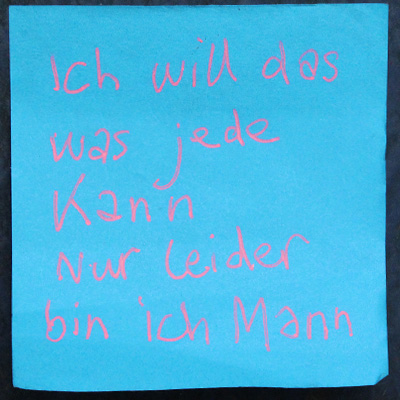 Ich will das
was jede
Kann
Nur leider
bin ich Mann